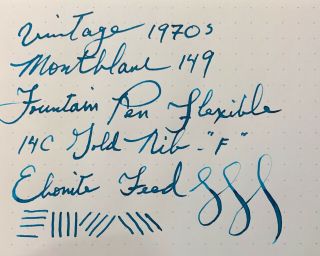 Vintage 1970s
Montblanc 149
Fountain Pen Flexible
14C Gold Nib - "F"
Ebonite Feed